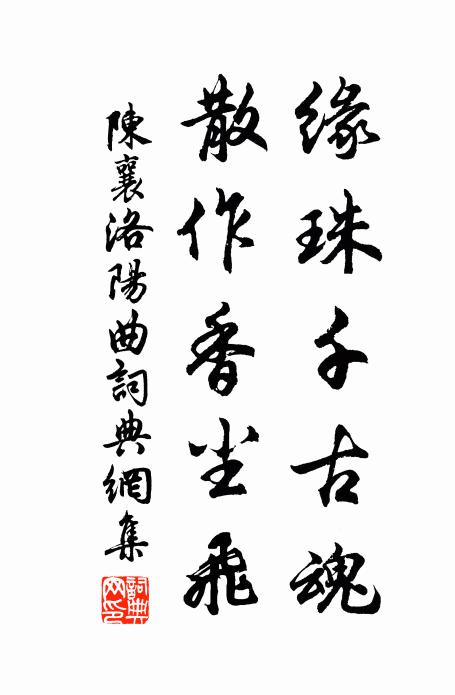 緣珠千古魂
散作香尘飛
陳襄洛陽曲詞典網集
詞典网印